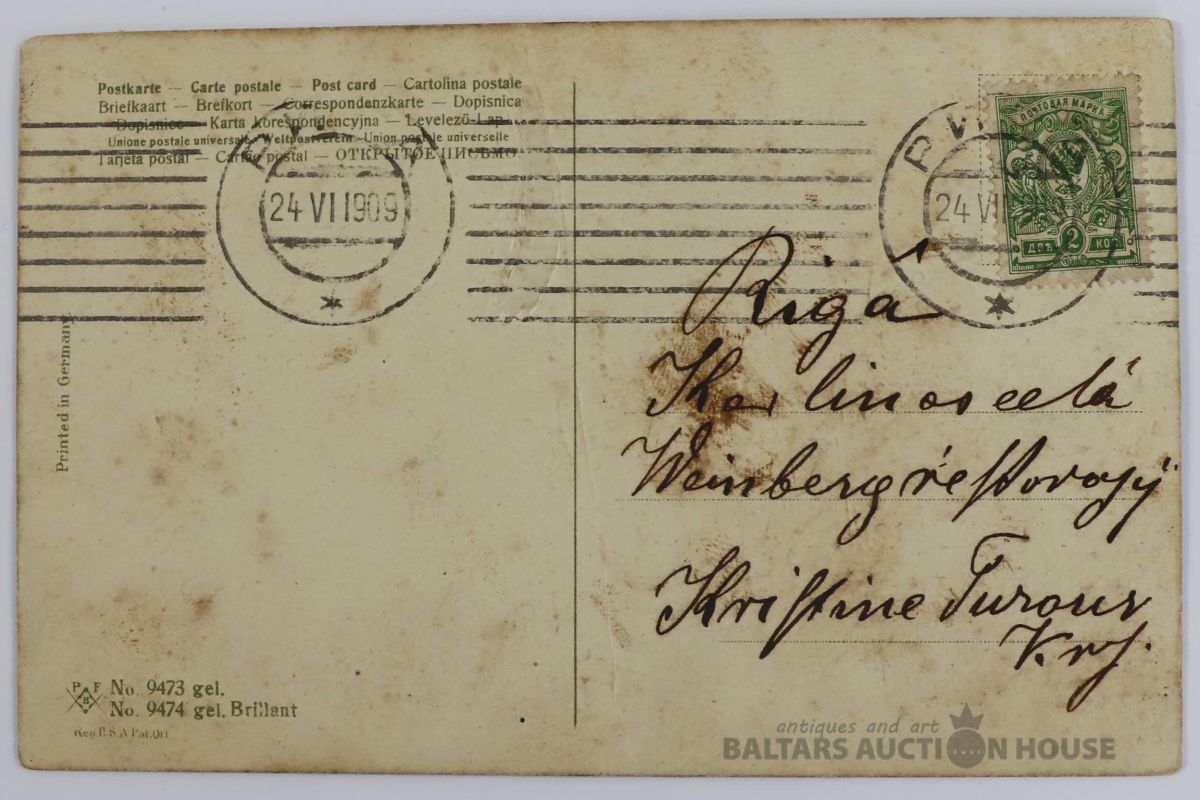 Postkarte — Carte postale — Post card — Cartolina postale
Briefkaart — Brefkort — Correspondenzkarte — Dopisnica
Dopisnice — Karta korespondencyjna — Levelező-Lap
Unione postale universale - Weltpostverein - Union postale universelle
Tarjeta postal — Cartão postal — ОТКРЫТОЕ ПИСЬМО
24 VI 1909
24 VI
ПОЧТОВАЯ МАРКА
ДВѢ 2 КОП
Printed in Germany
Riga
Weinberg
Kristine
PFB No. 9473 gel.
No. 9474 gel. Brillant
Reg. U.S.A Pat.Off
antiques and art
BALTARS AUCTION HOUSE